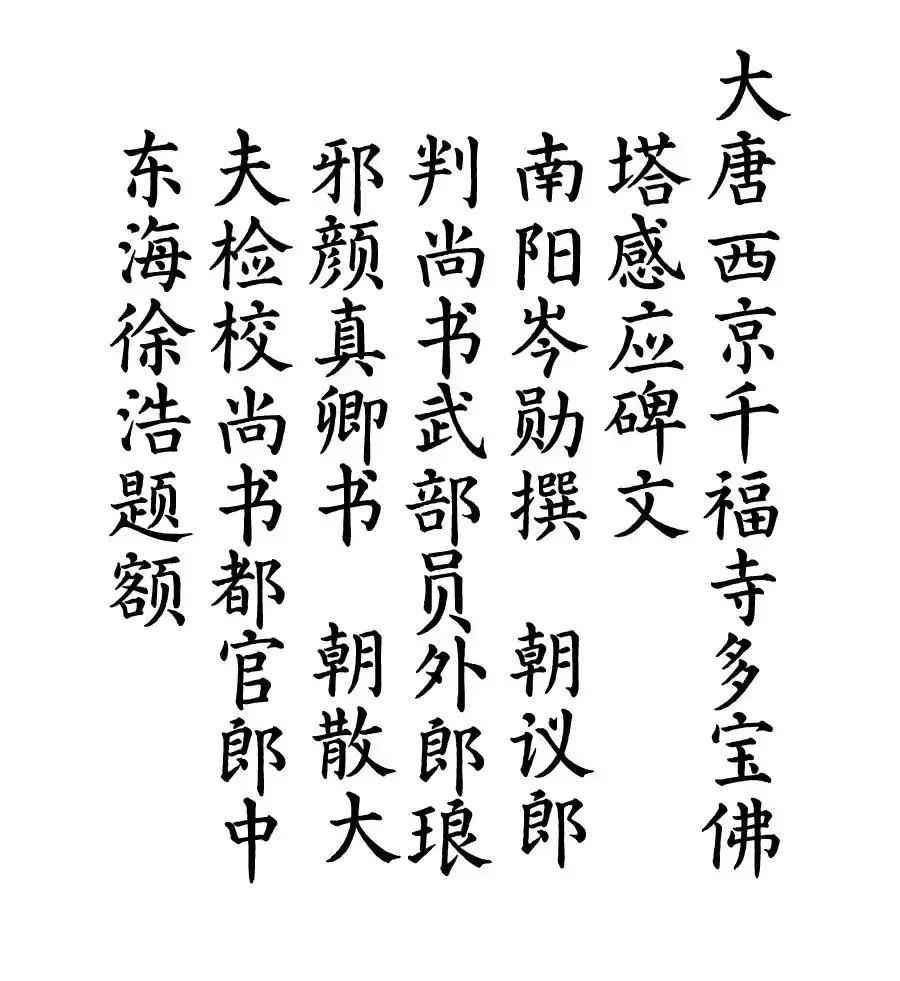 大唐西京千福寺多宝佛
塔感应碑文
南阳岑勋撰 朝议郎
判尚书武部员外郎琅
邪颜真卿书 朝散大
夫检校尚书都官郎中
东海徐浩题额